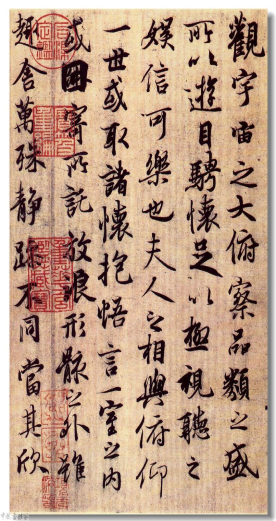 觀宇宙之大俯察品類之盛
所以遊目騁懷足以極視聽之
娛信可樂也夫人之相與俯仰
一世或取諸懷抱悟言一室之内
或因寄所託放浪形骸之外雖
趣舍萬殊静躁不同當其欣